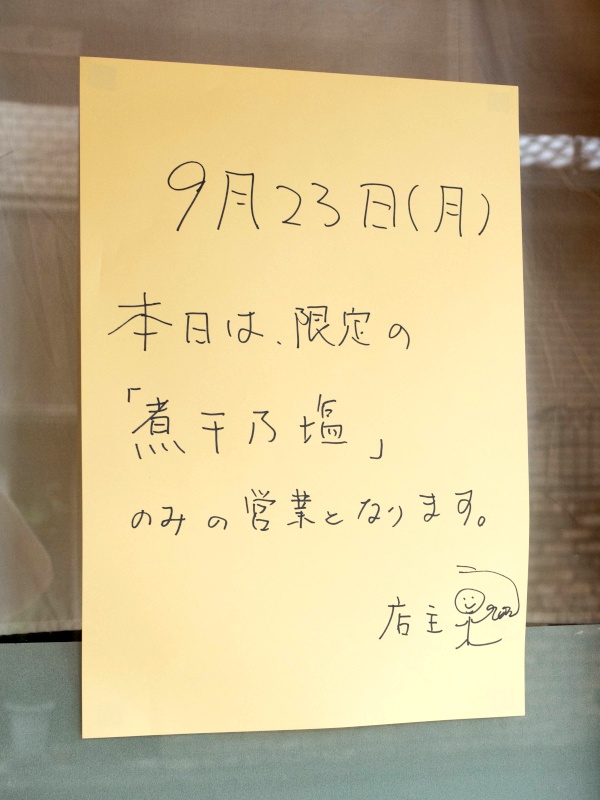 9月23日(月)
本日は、限定の
「煮干乃塩」
のみの営業となります。
店主